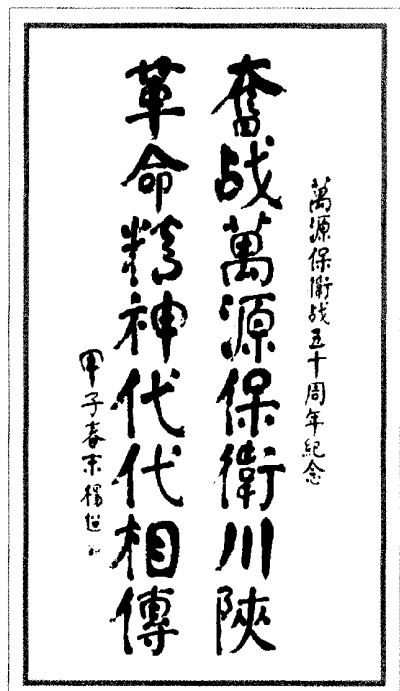 萬源保衛战五十周年紀念
奮战萬源保衛川陝
革命精神代代相傳
甲子春末楊超